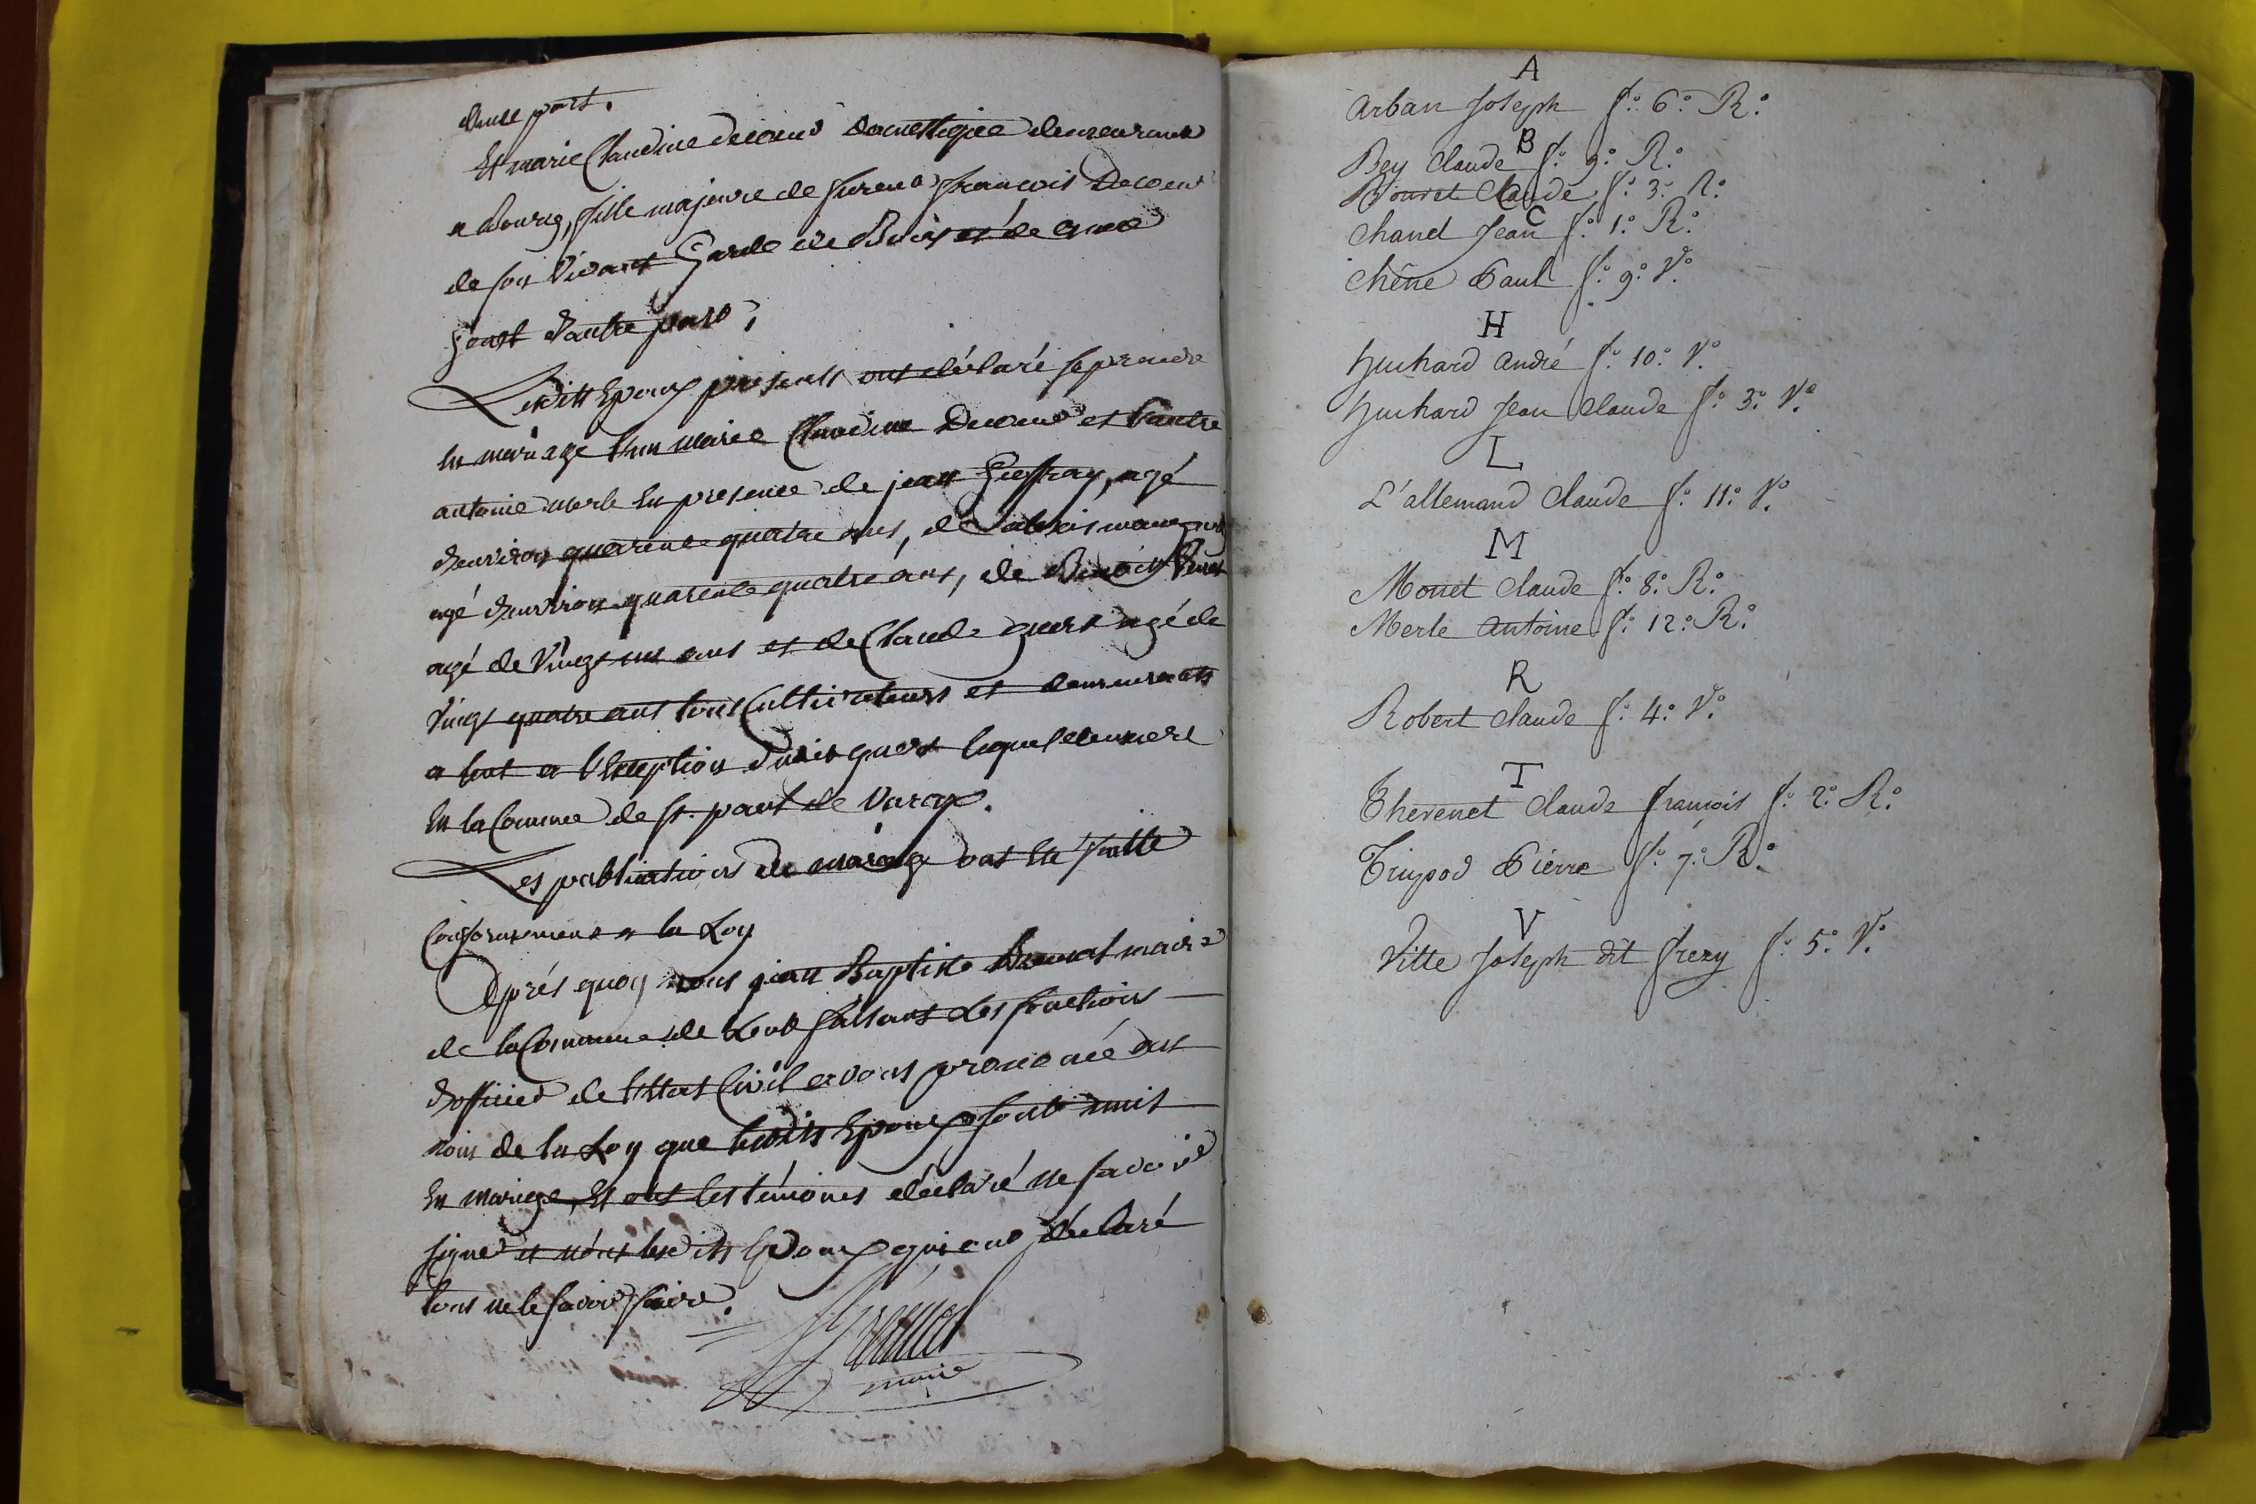 d'une part.
Et marie Claudine Decœur domestique demeurant
a Bourg, fille majeure de furent françois Decœur
de son vivant Garde de Bois et de
d'autre part,
Lesdits Epoux présents ont déclaré se prendre
en mariage l'un marie Claudine Decœur et l'autre
antoine merle En presence de jean Geoffray, agé
d'environ quarente quatre ans, de
agé d'environ quarente quatre ans, de Benoit
agé de Vingt un ans et de Claude guers agé de
Vingt quatre ans tous Cultivateurs et demeurants
a Lent a l'Exception dudit guers lequel demeure
En la Commune de St. paul de Varax.
Les publications de mariage ont Eté faitte
Conformement a la Loy
Après quoy nous jean Baptiste maire
de la Commune de Lent faisant les fonctions
d'officier de l'Etat Civil avons prononcé au
nom de la Loy que lesdits Epoux sont unis
En mariage, Et ont les témoins déclaré ne savoir
signer et nous lesdits Epoux qui ont déclaré
tous ne le savoir faire.
maire
A
Arban Joseph f.º 6.º R.º
B
Bey Claude f.º 9.º R.º
Bouvet Claude f.º 3.º R.º
C
Chanel Jean f.º 1.º R.º
Chêne Paul f.º 9.º V.º
H
huchard André f.º 10.º V.º
huchard Jean Claude f.º 3.º V.º
L
L'allemand Claude f.º 11.º V.º
M
Monet Claude f.º 8.º R.º
Merle Antoine f.º 12.º R.º
R
Robert Claude f.º 4.º V.º
T
Thevenet Claude françois f.º 2.º R.º
Tripod Pierre f.º 7.º R.º
V
Vitte Joseph dit frery f.º 5.º V.º